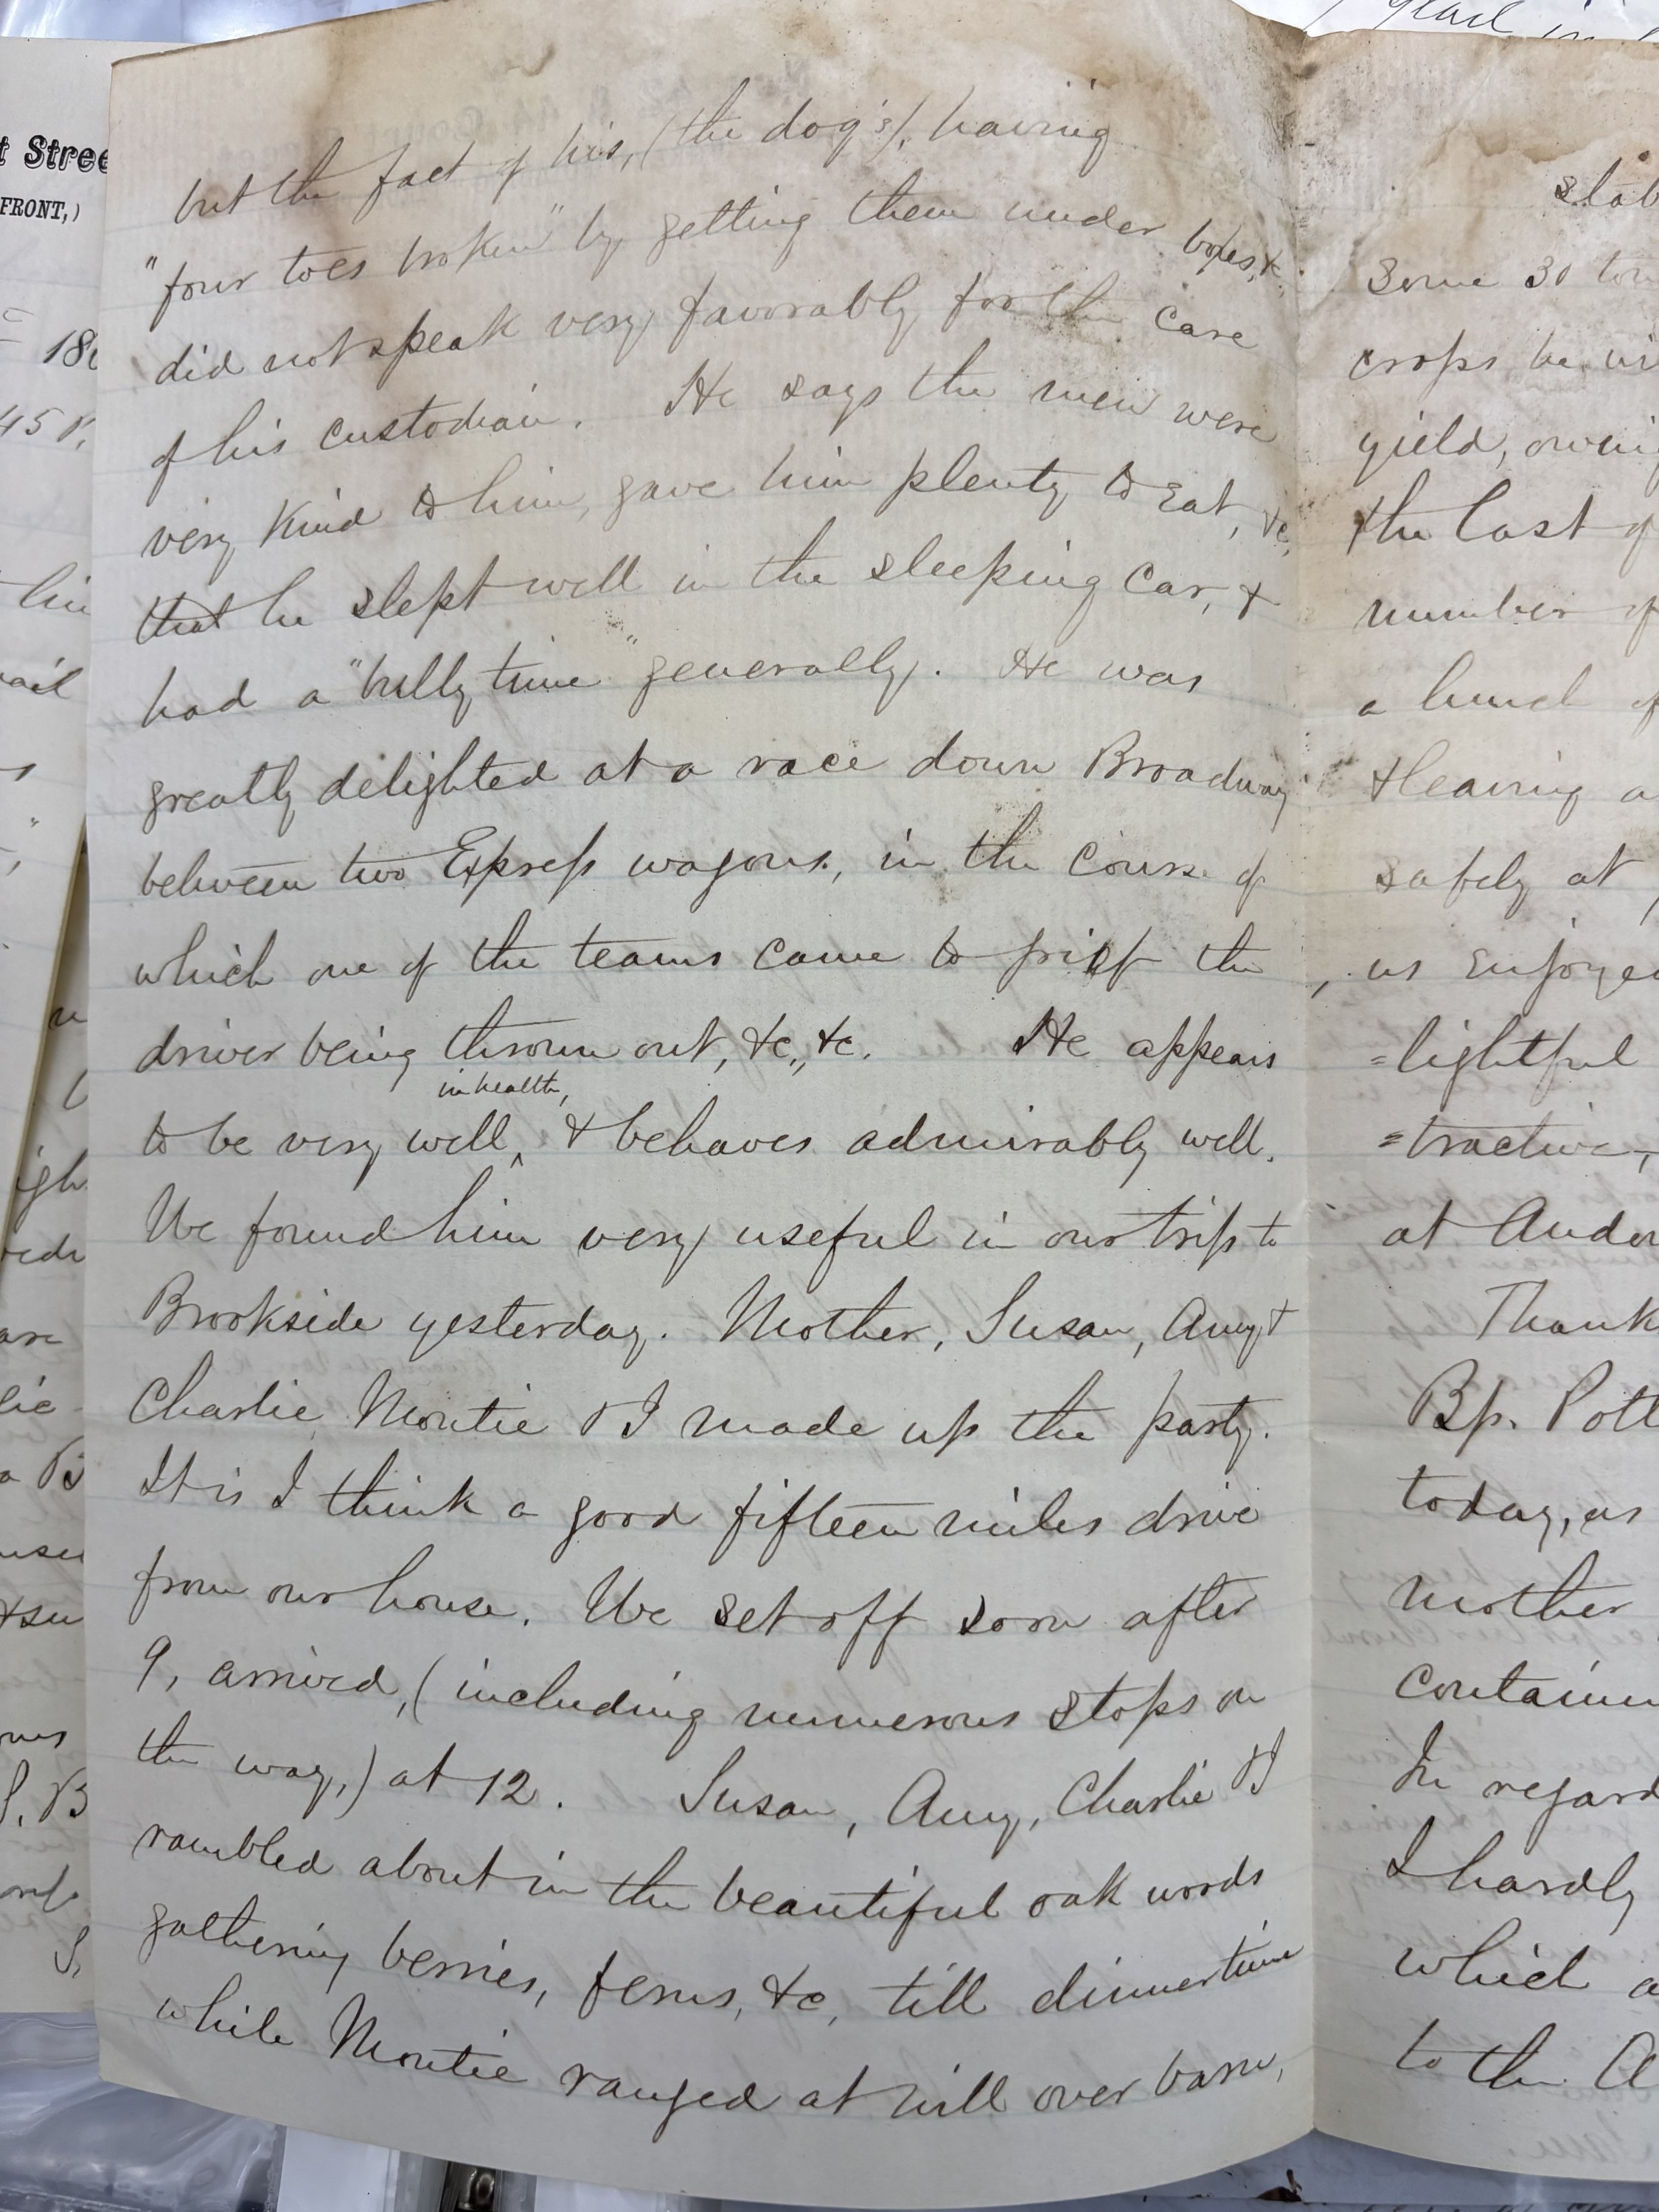 but the fact of his, (the dog's), having
"four toes broken" by getting them under boxes, &c.
did not speak very favorably for the care
of his custodian. He says the men were
very kind to him, gave him plenty to eat, &c,
that he slept well in the sleeping car, &
had a "bully time" generally. He was
greatly delighted at a race down Broadway
between two Express wagons, in the course of
which one of the teams came to grief the
driver being thrown out, &c., &c. He appears
in health,
to be very well ^ & behaves admirably well.
We found him very useful in our trip to
Brookside yesterday. Mother, Susan, Amy &
Charlie Montie & I made up the party.
It is I think a good fifteen miles drive
from our house. We set off soon after
9, arrived, (including numerous stops on
the way,) at 12. Susan, Amy, Charlie & I
rambled about in the beautiful oak woods
gathering berries, ferns, &c, till dinner time
while Montie ranged at will over barn,
stab
Some 30 ton
crops he wi
yield, owing
the last of
number of
a lunch of
& leaving a
safely at
, us enjoyed
=lightful
=tractive,
at Ander
Thank
Bp. Pott
today, as
mother
containin
In regard
I hardly
which a
to the A
t Stree
FRONT,)
186
45 P.